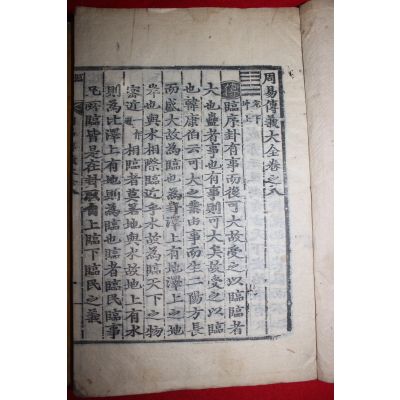 周易傳義大全卷之八
兌下
坤上
傳臨序卦有事而後可大故受之以臨臨者
大也蠱者事也有事則可大矣故受之以臨
也韓康伯云可大之業由事而生二陽方長
而盛大故為臨也為卦澤上有地澤上之地
岸也與水相際臨近乎水故為臨天下之物
密近相臨者莫若地與水故地上有水
則為比澤上有地則為臨也臨者臨民臨事
凡所臨皆是在卦取自上臨下臨民之義